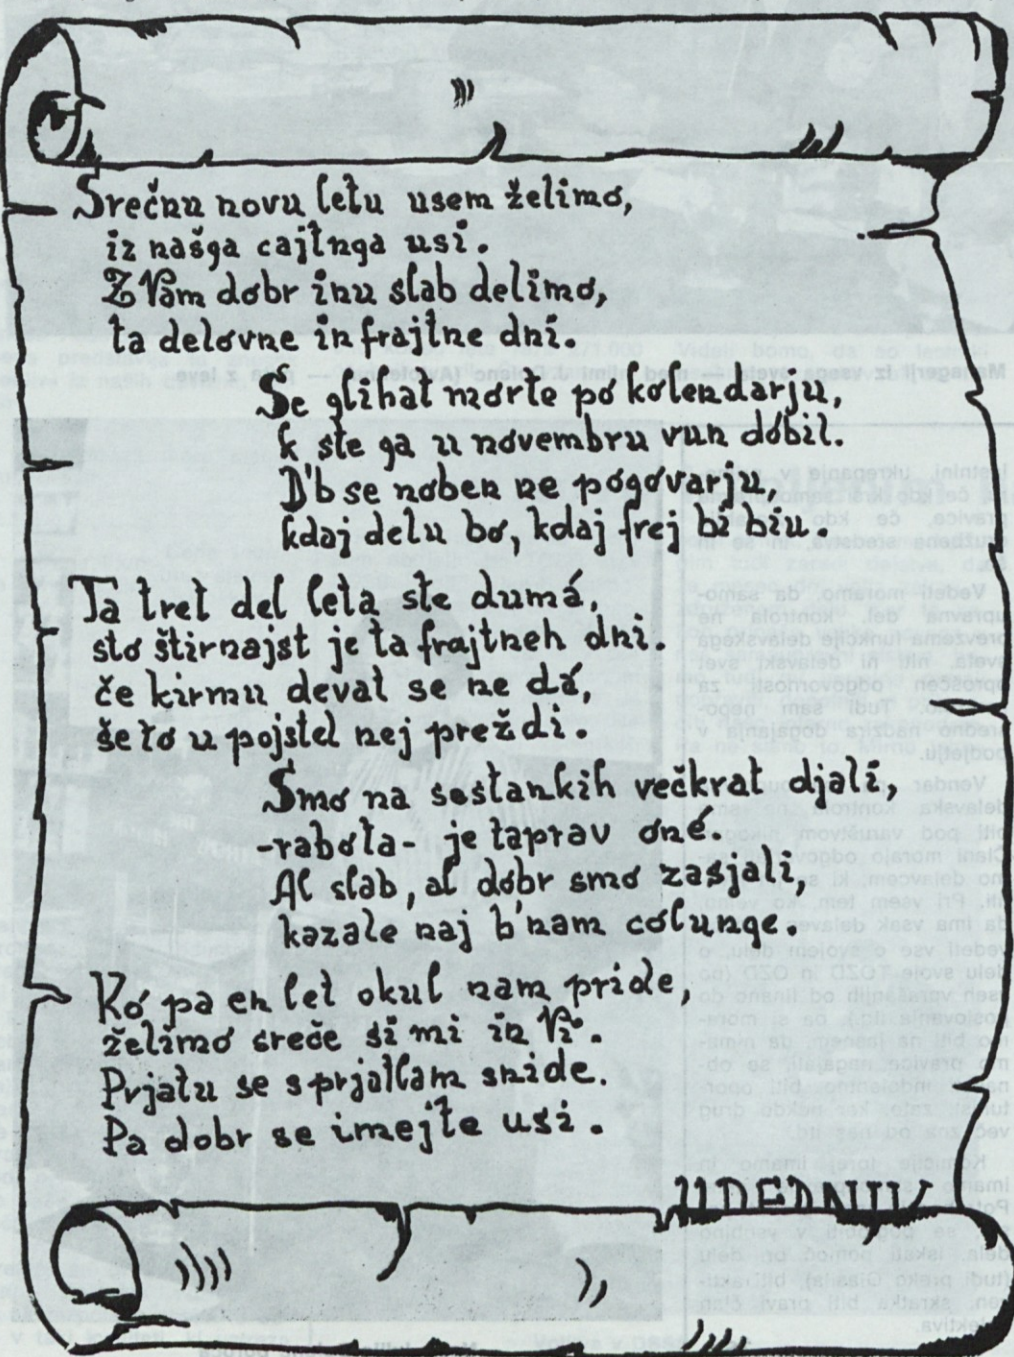 Srečnu novu letu usem želimo,
iz našga cajtnga usi.
Z Vam dobr inu slab delimo,
ta delovne in frajtne dni.
Se glihat morte po kolendarju,
k ste ga u novembru vun dobil.
D'b se noben ne pogovarju,
kdaj delu bo, kdaj frej bi biu.
Ta tret del leta ste dumá,
sto štirnajst je ta frajtneh dni.
če kirmu devat se ne dá,
še to u pojstel nej preždi.
Smo na sestankih večkrat djali,
-rabota- je taprav oné.
Al slab, al dobr smo zasjali,
kazale naj b'nam colunge.
Ko pa en let okul nam pride,
želimo sreče si mi in Vi.
Prjatu se s prjatlam snide.
Pa dobr se imejte usi.